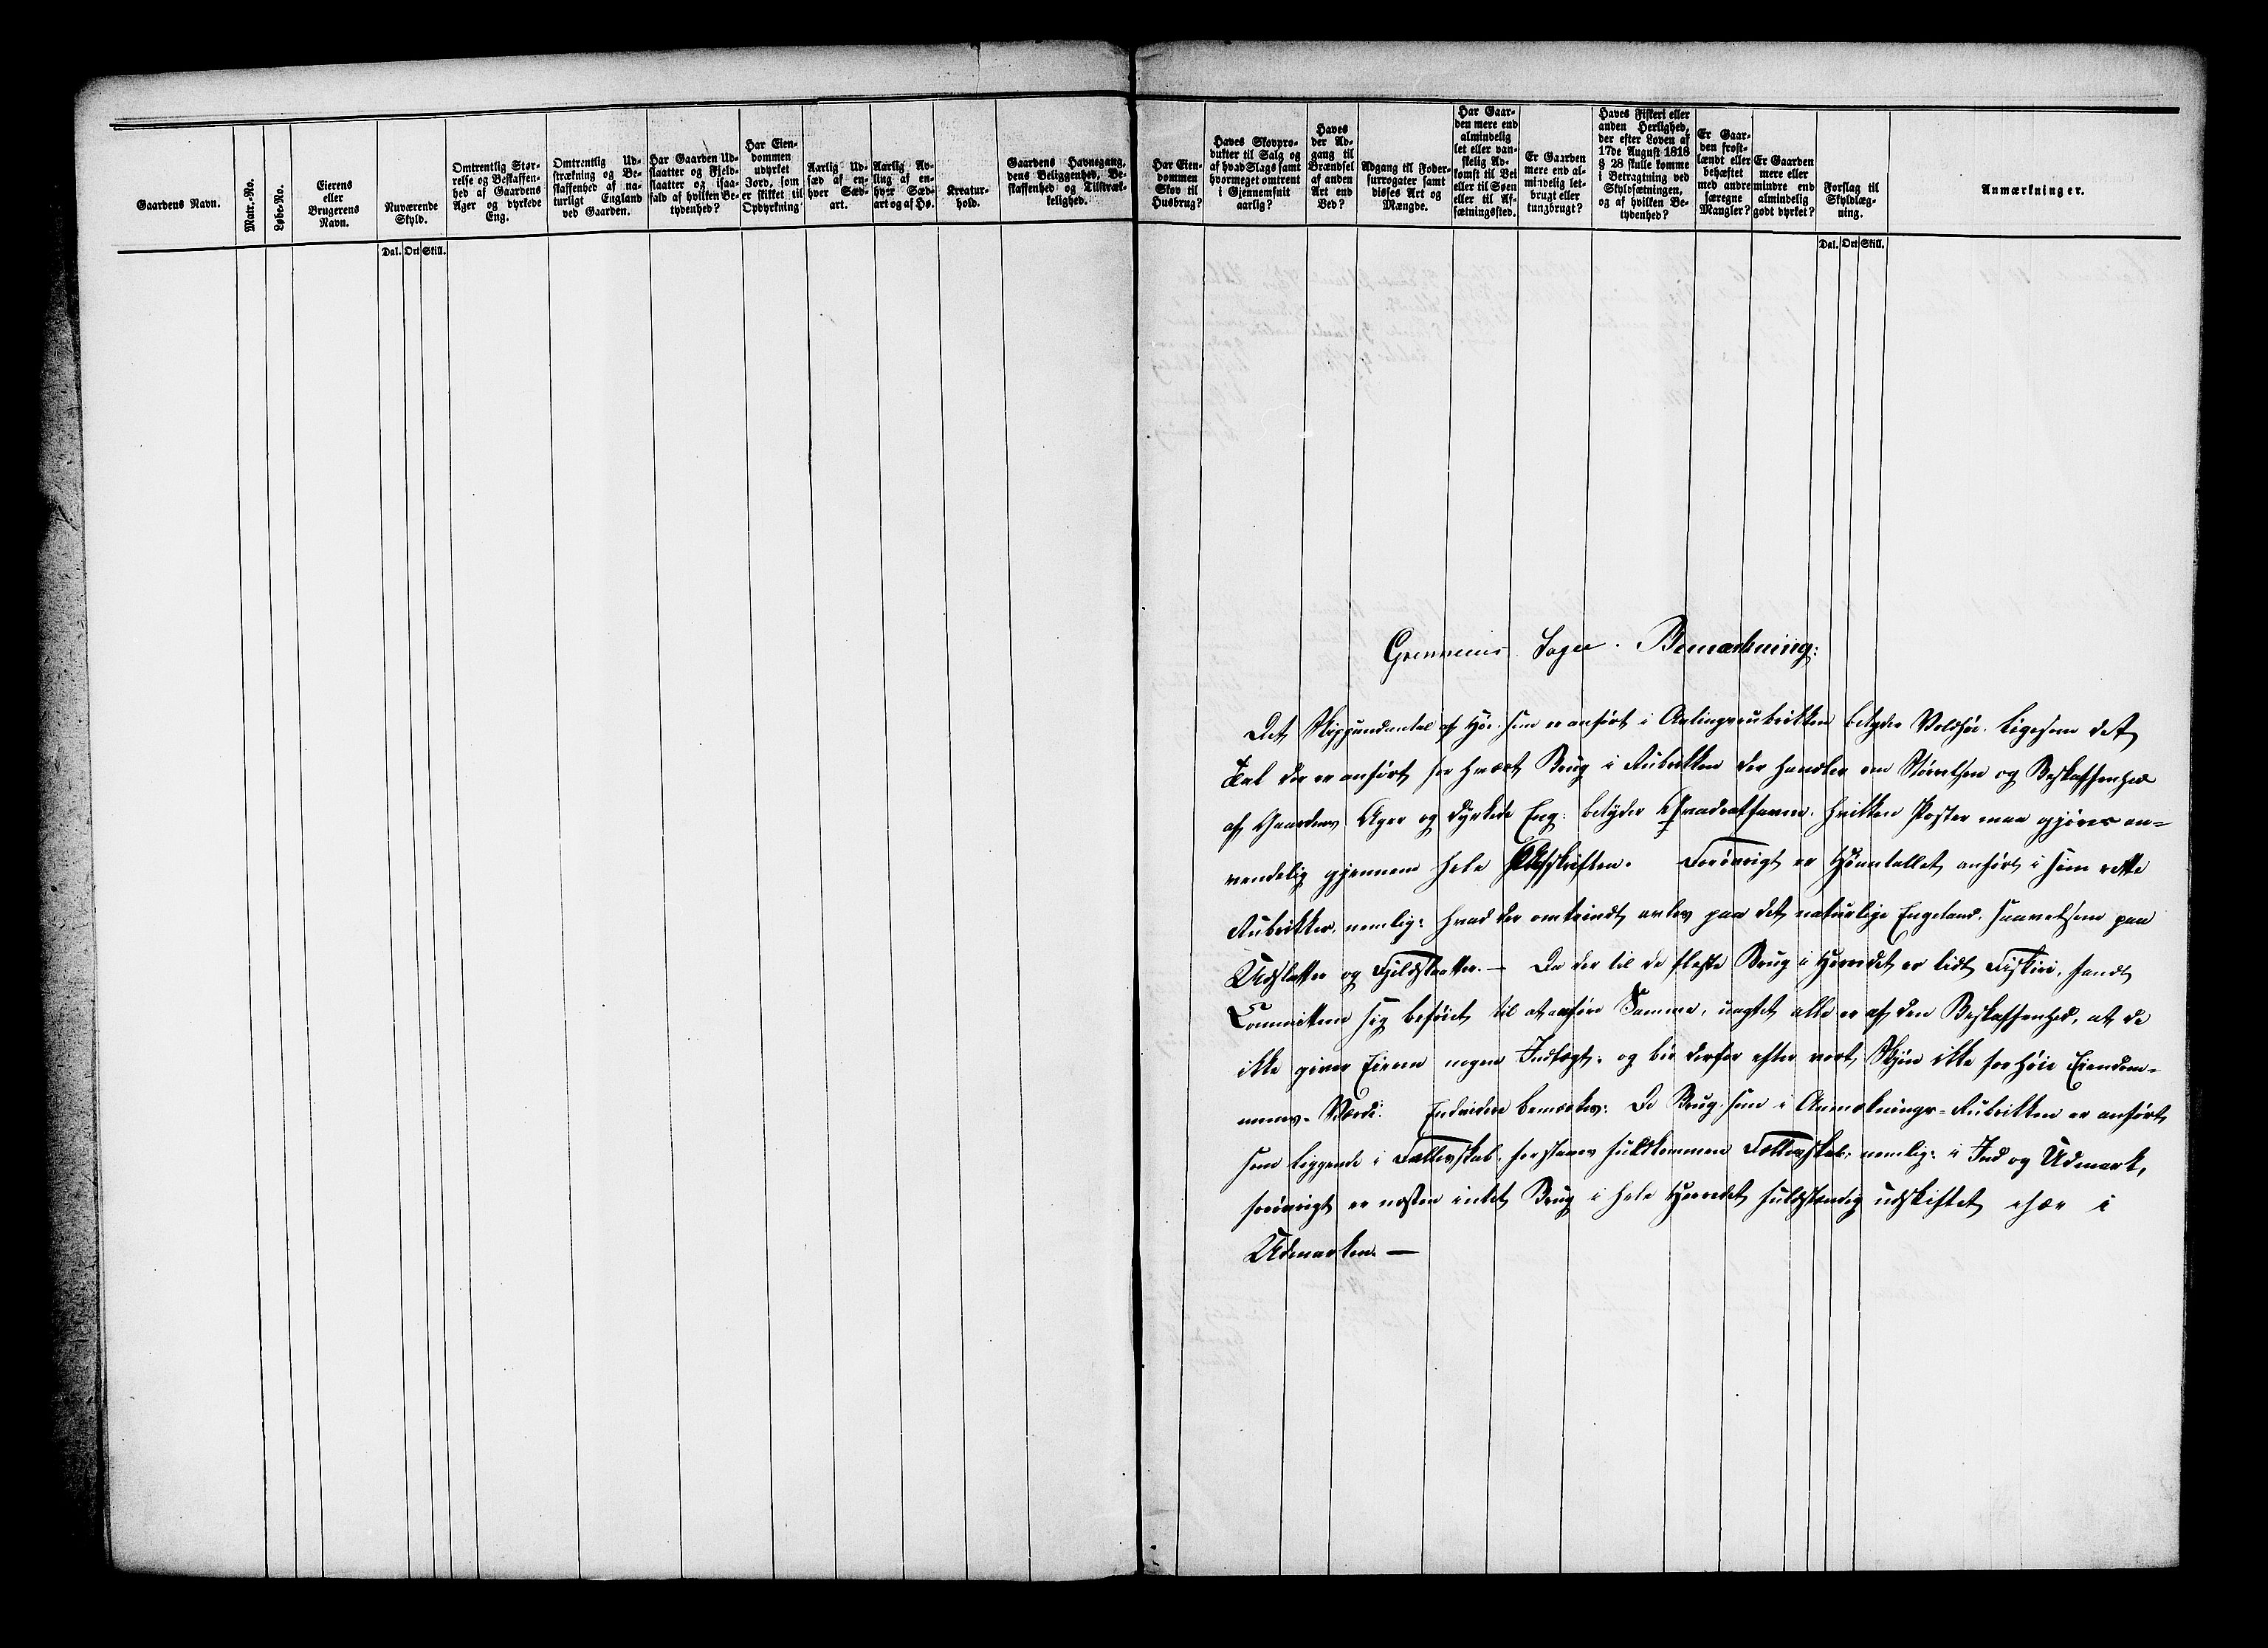 Gaardens Navn.
Matr.-No.
Løbe-No.
Eierens
eller
Brugerens
Navn.
Nuværende
Skyld.
Dal. Ort Skill.
Omtrentlig Stør-
relse og Beskaffen-
hed af Gaardens
Ager og dyrkede
Eng.
Omtrentlig Ud-
strækning og Be-
skaffenhed af na-
turligt England
ved Gaarden.
Har Gaarden Ud-
slaatter og Fjeld-
slaatter og isaa-
fald af hvilken Be-
tydenhed?
Har Eien-
dommen
udyrket
Jord, som
er skikket til
Opdyrkning
Aarlig Ud-
sæd af en-
hver Sæd-
art.
Aarlig Av-
ling af en-
hver Sæd-
art og af Hø.
Kreatur-
hold.
Gaardens Havnegang,
dens Beliggenhed, Be-
skaffenhed og Tilstræk-
kelighed.
Har Eien-
dommen
Skov til
Husbrug?
Haves Skovpro-
dukter til Salg og
af hvad Slags samt
hvormeget omtrent
i Gjennemsnit
aarlig?
Haves
der Ad-
gang til
Brændsel
af anden
Art end
Ved?
Adgang til Foder-
surrogater samt
disses Art og
Mængde.
Har Gaar-
den mere end
almindelig
let eller van-
skelig Ad-
komst til Vei
eller til Søen
eller til Af-
sætningssted.
Er Gaarden
mere end al-
mindelig let-
brugt eller
tungbrugt?
Haves Fiskeri eller
anden Herlighed,
der efter Loven af
17de August 1818
§ 28 skulle komme
i Betragtning ved
Skyldsætningen,
og af hvilken Be-
tydenhed?
Er Gaar-
den frost-
lændt eller
behæftet
med andre
særegne
Mangler?
Er Gaarden
mere eller
mindre end
almindelig
godt dyrket?
Forslag til
Skyldlæg-
ning.
Dal. Ort Skill.
Anmærkninger.
Sogn. Bemærkning:
Det Skippundantal af Hø. som er anført i Avlingsrubrikken betyder Voldhø. ligesom det
Tal der er anført for hvert Brug i Rubrikken der handler om Størrelsen og Beskaffenhed
af Gaardens Ager og dyrkede Eng. betyder Qvadratfavne. hvilken Poster maa gjøres an=
vendelig gjennem hele Afskriften. Forøvrigt er Høantallet anført i sine rette
Rubrikker, nemlig: hvad der omtrindt avles paa det naturlige Engeland. saavelsom paa
Udslatter og Fjeldslaatter. — Da der til de fleste Brug i Herredet er lidt Fiskeri, fandt
Committeen sig beføiet til at anføre Samme, uagtet alle er af den Beskaffenhed, at de
ikke giver Eieren nogen Indtægt. og bør derfor efter vort Skjøn ikke forhøie Eiendom=
mens Værdi. Endvidere bemærkes: De Brug som i Anmerknings=Rubrikken er anført
som liggende i Fællesskab. forstaaes fuldkommen Fællesskab, nemlig: i Ind og Udmark,
forøvrigt er næsten intet Brug i hele Herredet fuldstendig udskiftet især i
Udmarken. —